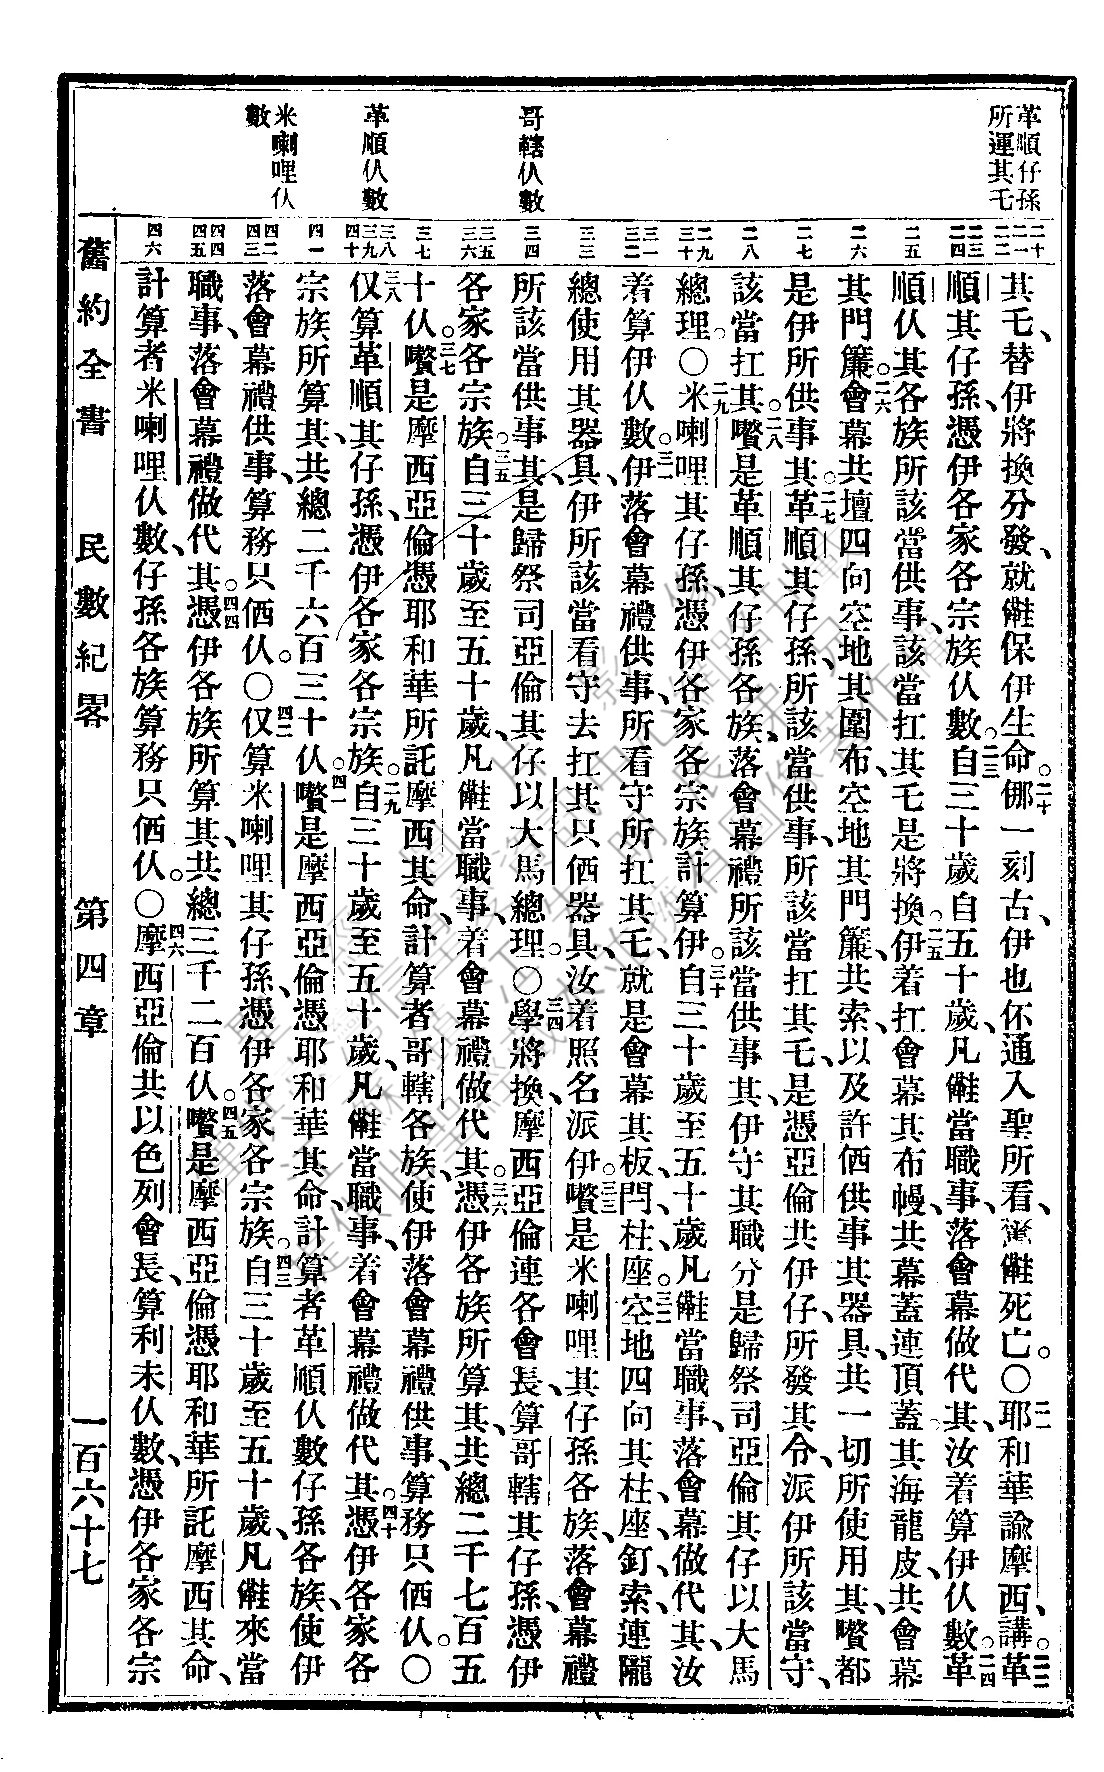 革順仔孫
所運其乇
哥轄仈數
革順仈數
米喇哩仈
數
其乇、替伊將換分發、就㑚保伊生命。二十㑚一刻古、伊也伓通入聖所看、驚㑚死亡。○二一耶和華諭摩西講。二二革
順其仔孫、憑伊各家各宗族仈數。二三自三十歲自五十歲、凡㑚當職事、落會幕做代其、汝着算伊仈數。二四革
順仈其各族、所該當供事、該當扛其乇是將換。二五伊着扛會幕其布幔、共幕蓋連頂蓋其海龍皮、共會幕
其門簾。二六會幕共壇四向空地其圍布、空地其門簾、共索、以及許俉供事其器具、共一切所使用其、嚽都
是伊所供事其。二七革順其仔孫、所該當供事、所該當扛其乇、是憑亞倫共伊仔、所發其令、派伊所該當守、
該當扛其。二八嚽是革順其仔孫各族、落會幕禮所該當供事其、伊守其職分是歸祭司亞倫其仔以大馬
總理。○二九米喇哩其仔孫、憑伊各家各宗族計算伊。三十自三十歲至五十歲、凡㑚當職事、落會幕做代其、汝
着算伊仈數。三一伊落會幕禮供事、所看守所扛其乇、就是會幕其板、閂、柱、座。三二空地四向其柱、座、釘、索、連隴
總使用其器具、伊所該當看守去扛其只俉器具、汝着照名派伊。三三嚽是米喇哩其仔孫各族、落會幕禮
所該當供事其、是歸祭司亞倫其仔以大馬總理。○三四學將換摩西亞倫連各會長、算哥轄其仔孫、憑伊
各家各宗族。三五自三十歲至五十歲、凡㑚當職事、着會幕禮做代其。三六憑伊各族所算其、共總二千七百五
十仈。三七嚽是摩西亞倫憑耶和華所託摩西其命、計算者哥轄各族、使伊落會幕禮供事、算務只俉仈。○
三八仅算革順其仔孫、憑伊各家各宗族。二九自三十歲至五十歲、凡㑚當職事、着會幕禮做代其。四十憑伊各家各
宗族所算其、共總二千六百三十仈。四一嚽是摩西亞倫憑耶和華其命、計算者革順仈數仔孫各族、使伊
落會幕禮供事、算務只俉仈。○四二仅算米喇哩其仔孫、憑伊各家各宗族。四三自三十歲至五十歲、凡㑚來當
職事、落會幕禮做代其。四四憑伊各族所算其、共總三千二百仈。四五嚽是摩西亞倫憑耶和華所託摩西其命、
計算者米喇哩仈數、仔孫各族算務只俉仈。○四六摩西亞倫共以色列會長、算利未仈數、憑伊各家各宗
舊約全書　民數紀畧　第四章　一百六十七